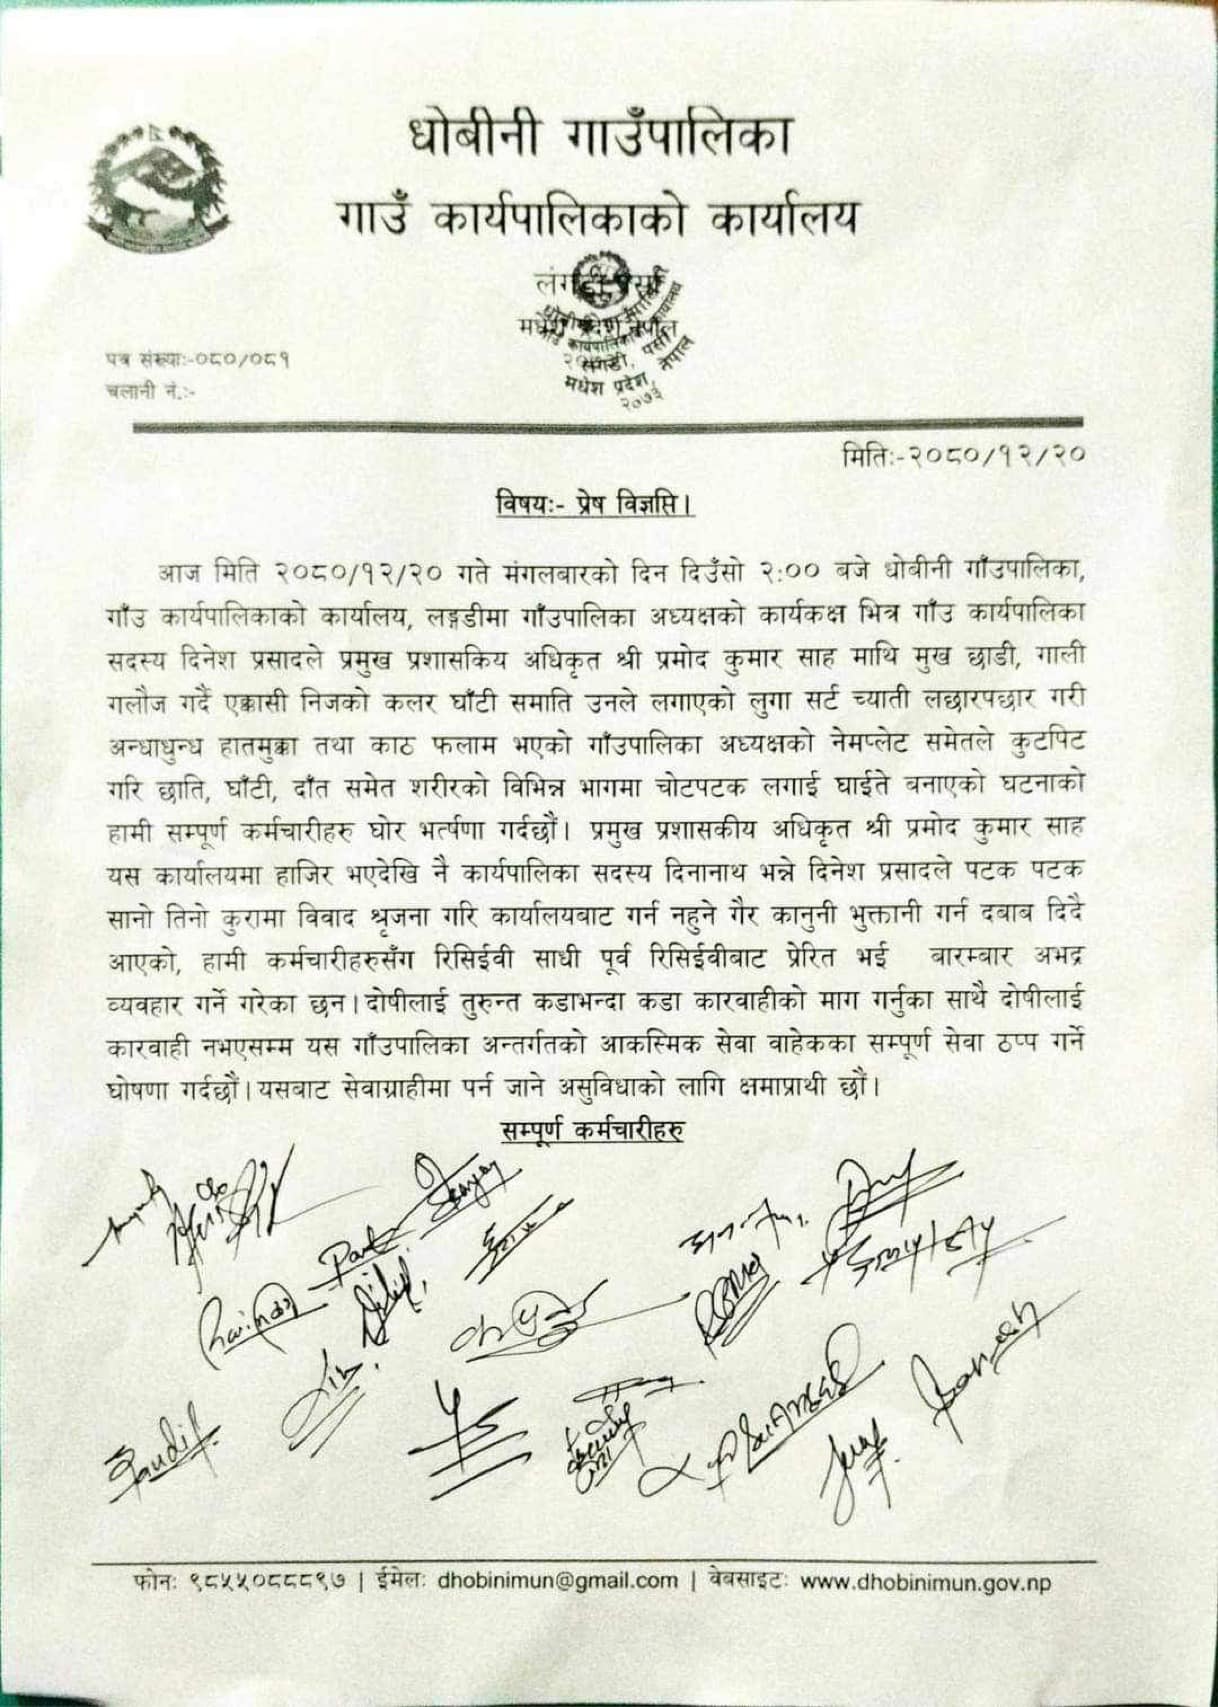 धोबीनी गाउँपालिका
गाउँ कार्यपालिकाको कार्यालय
मधेश प्रदेश, नेपाल
२०७३
पत्र संख्याः-०८०/०८१
चलानी नं.:-
मितिः-२०८०/१२/२०
विषयः- प्रेष विज्ञप्ति।
आज मिति २०८०/१२/२० गते मंगलबारको दिन दिउँसो २:०० बजे धोबीनी गाँउपालिका,
गाँउ कार्यपालिकाको कार्यालय, लङ्गडीमा गाँउपालिका अध्यक्षको कार्यकक्ष भित्र गाँउ कार्यपालिका
सदस्य दिनेश प्रसादले प्रमुख प्रशासकिय अधिकृत श्री प्रमोद कुमार साह माथि मुख छाडी, गाली
गलौज गर्दै एक्कासी निजको कलर घाँटी समाति उनले लगाएको लुगा सर्ट च्याती लछारपछार गरी
अन्धाधुन्ध हातमुक्का तथा काठ फलाम भएको गाँउपालिका अध्यक्षको नेमप्लेट समेतले कुटपिट
गरि छाति, घाँटी, दाँत समेत शरीरको विभिन्न भागमा चोटपटक लगाई घाईते बनाएको घटनाको
हामी सम्पूर्ण कर्मचारीहरु घोर भर्त्षणा गर्दछौं। प्रमुख प्रशासकीय अधिकृत श्री प्रमोद कुमार साह
यस कार्यालयमा हाजिर भएदेखि नै कार्यपालिका सदस्य दिनानाथ भन्ने दिनेश प्रसादले पटक पटक
सानो तिनो कुरामा विवाद श्रृजना गरि कार्यालयबाट गर्न नहुने गैर कानुनी भुक्तानी गर्न दबाब दिदै
आएको, हामी कर्मचारीहरुसँग रिसिईवी साधी पूर्व रिसिईवीबाट प्रेरित भई बारम्बार अभद्र
व्यवहार गर्ने गरेका छन। दोषीलाई तुरुन्त कडाभन्दा कडा कारवाहीको माग गर्नुका साथै दोषीलाई
कारवाही नभएसम्म यस गाँउपालिका अन्तर्गतको आकस्मिक सेवा वाहेकका सम्पूर्ण सेवा ठप्प गर्ने
घोषणा गर्दछौं। यसबाट सेवाग्राहीमा पर्न जाने असुविधाको लागि क्षमाप्रार्थी छौं।
सम्पूर्ण कर्मचारीहरु
फोनः ९८५५०८८८९७ | ईमेलः dhobinimun@gmail.com | वेबसाइटः www.dhobinimun.gov.np